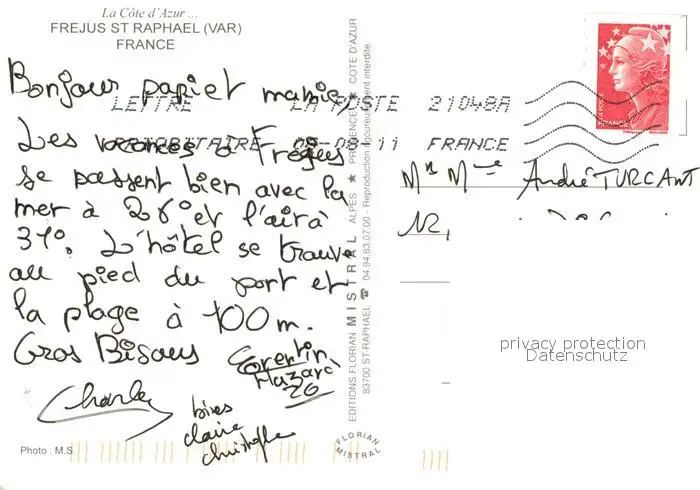 La Côte d'Azur ...
FREJUS ST RAPHAEL (VAR)
FRANCE
Bonjour papi et mamie,
Les vacances à Fréjus
se passent bien avec la
mer à 26° et l'air à
31°. L'hôtel se trouve
au pied du port et
la plage à 100 m.
Gros Bisous
Corentin
Charles
bises
claire
christophe
Photo : M.S.
LETTRE LA POSTE 21048A
PRIORITAIRE 05-08-11 FRANCE
FRANCE
EDITIONS FLORIAN MISTRAL ALPES ★ PROVENCE ★ COTE D'AZUR
83700 ST-RAPHAEL ☎ 04.94.83.07.00 - Reproduction rigoureusement interdite
FLORIAN
MISTRAL
Mr Mme André TURCANT
12,
privacy protection
Datenschutz